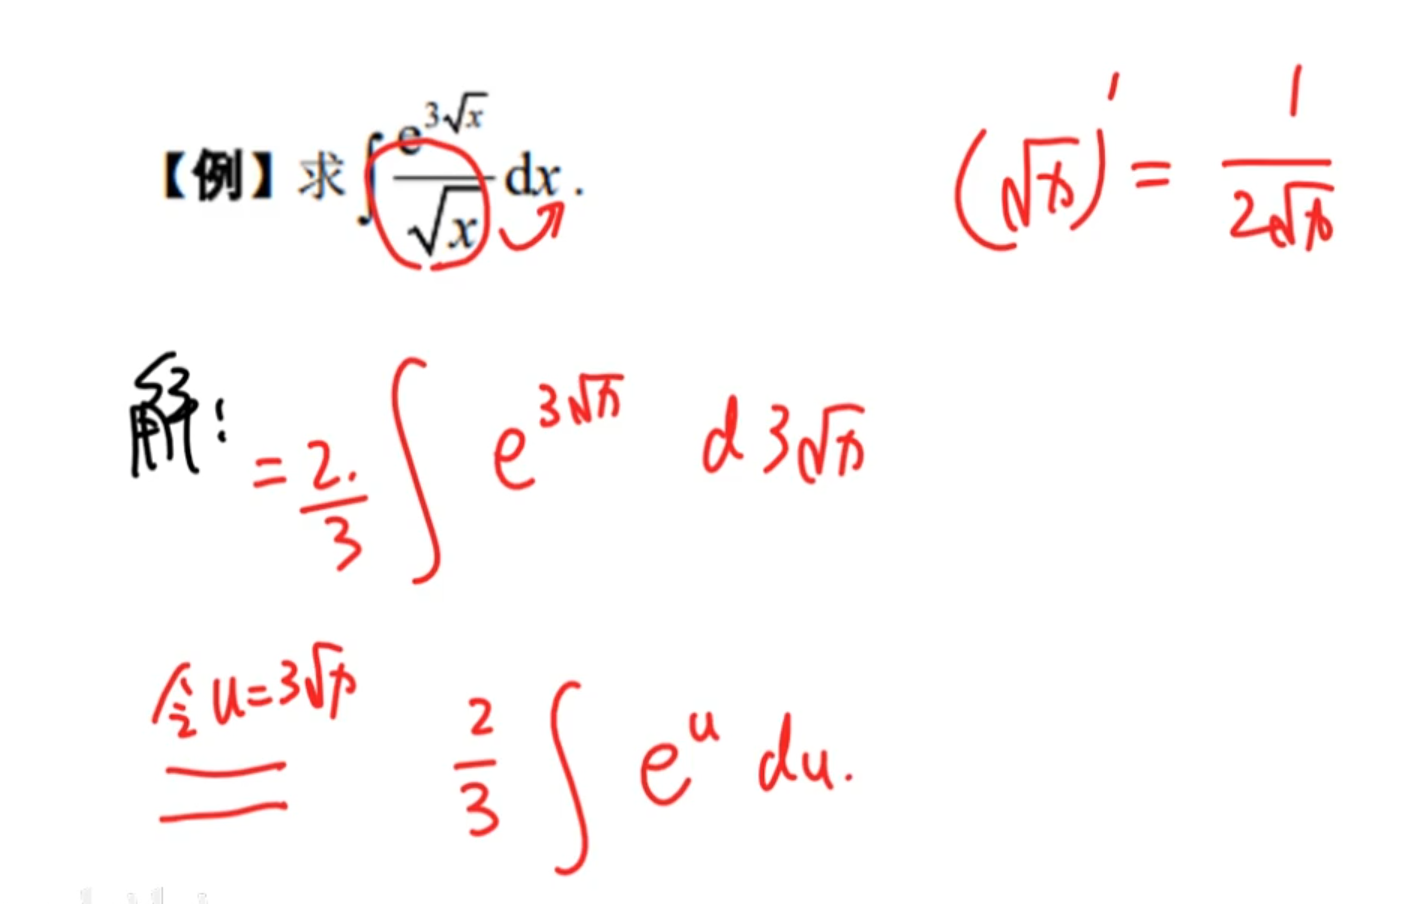 【例】求 ∫ e^{3√x}/√x dx .
(√x)' = 1/(2√x)
解:
= 2/3 · ∫ e^{3√x} d 3√x
令 u=3√x
== 2/3 ∫ e^u du.